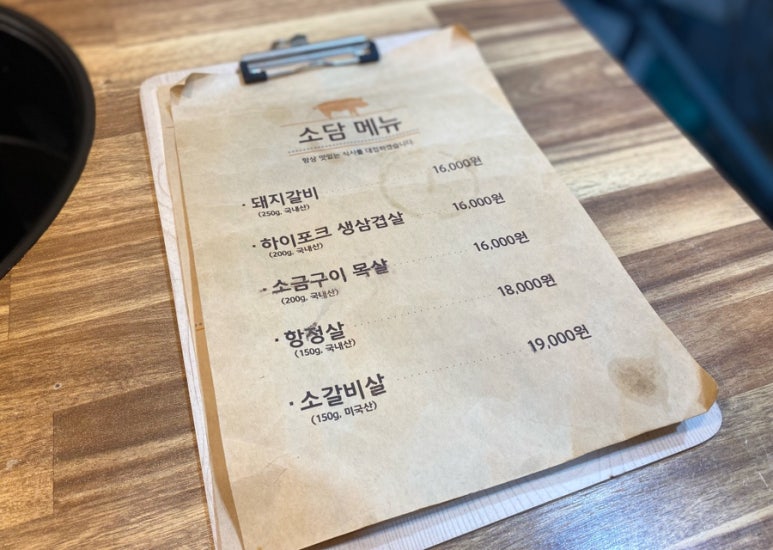 소담 메뉴
항상 맛있는 식사를 대접하겠습니다
· 돼지갈비 16,000원
(250g, 국내산)
· 하이포크 생삼겹살 16,000원
(200g, 국내산)
· 소금구이 목살 16,000원
(200g, 국내산)
· 항정살 18,000원
(150g, 국내산)
· 소갈비살 19,000원
(150g, 미국산)